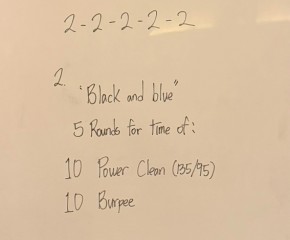 2-2-2-2-2
2.
"Black and blue"
5 Rounds for time of:
10 Power Clean (135/95)
10 Burpee